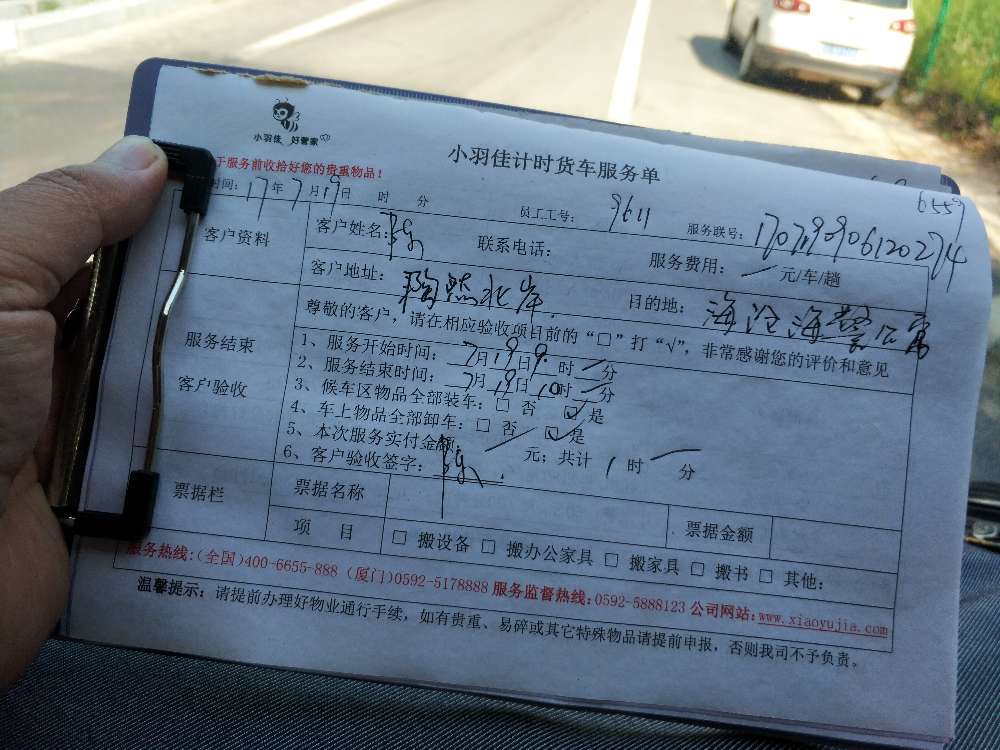 小羽佳 好管家
小羽佳计时货车服务单
于服务前收拾好您的贵重物品！
6559
时间：17年7月19日 时 分 员工工号：9611 服务联号：
客户资料 客户姓名：陈 联系电话： 服务费用：／元/车/趟
客户地址：陶然北岸 目的地：海沧海警公寓
服务结束
客户验收
尊敬的客户，请在相应验收项目前的“□”打“√”，非常感谢您的评价和意见
1、服务开始时间：7月19日9时／分
2、服务结束时间：7月19日10时／分
3、候车区物品全部装车：□ 否 ☑ 是
4、车上物品全部卸车：□ 否 ☑ 是
5、本次服务实付金额：／元；共计 1 时／分
6、客户验收签字：陈
票据栏 票据名称 票据金额
项 目 □ 搬设备 □ 搬办公家具 □ 搬家具 □ 搬书 □ 其他：
服务热线：(全国)400-6655-888 (厦门)0592-5178888 服务监督热线：0592-5888123 公司网站：www.xiaoyujia.com
温馨提示：请提前办理好物业通行手续，如有贵重、易碎或其它特殊物品请提前申报，否则我司不予负责。